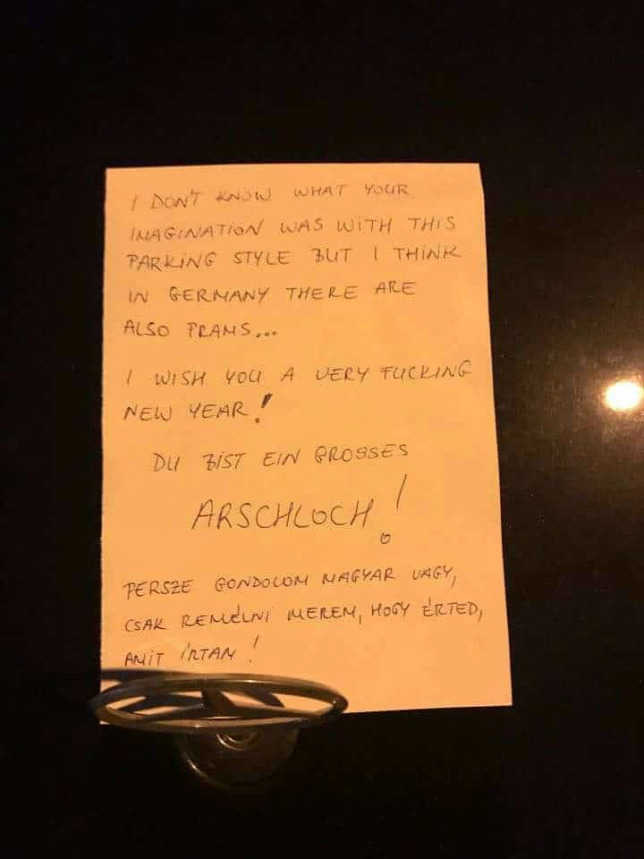 I DON'T KNOW WHAT YOUR
IMAGINATION WAS WITH THIS
PARKING STYLE BUT I THINK
IN GERMANY THERE ARE
ALSO PRAMS...
I WISH YOU A VERY FUCKING
NEW YEAR!
DU BIST EIN GROSSES
ARSCHLOCH!
PERSZE GONDOLOM MAGYAR VAGY,
CSAK REMÉLNI MEREM, HOGY ÉRTED,
AMIT ÍRTAM!